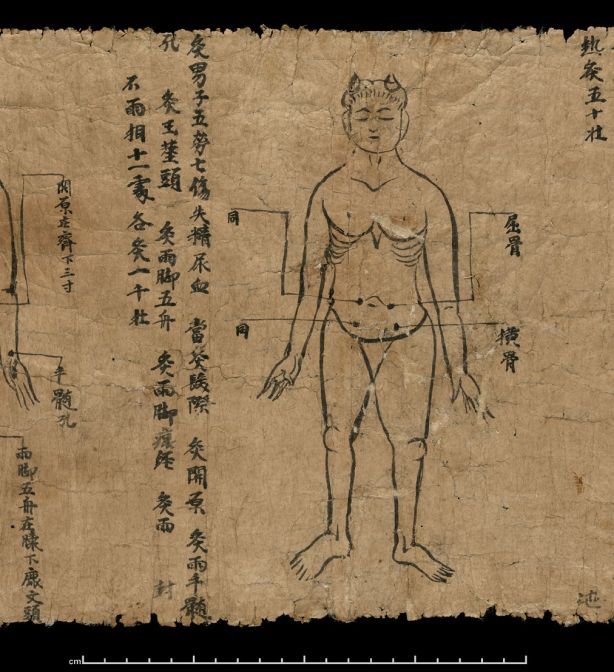 熱灸五十壯
屈骨
橫骨
同
同
灸男子五勞七傷失精尿血 當灸陵際 灸関原 灸兩手髓
孔 灸玉莖頭 灸兩脚五舟 灸兩脚痕經 灸兩 封
不兩相十一處各灸一千壯
関原在齊下三寸
手髓孔
兩脚五舟在膝下鹿文頭
cm